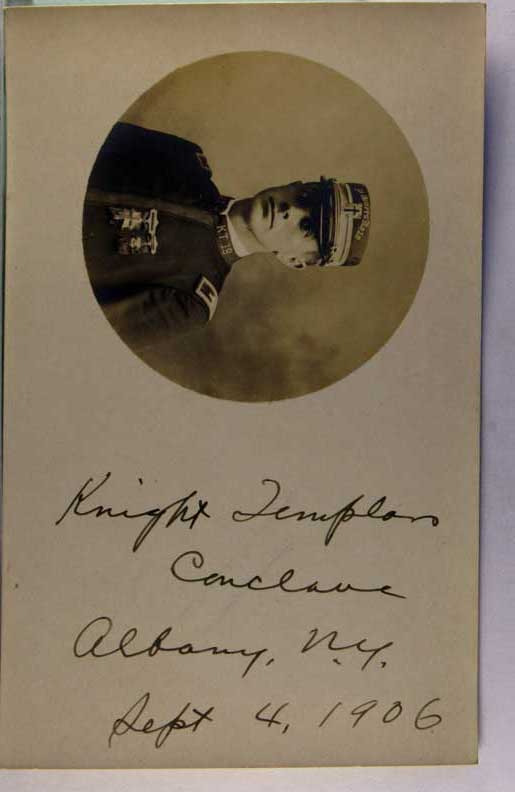 K.T. 19
Knight Templars
Conclave
Albany, N.Y.
Sept 4, 1906